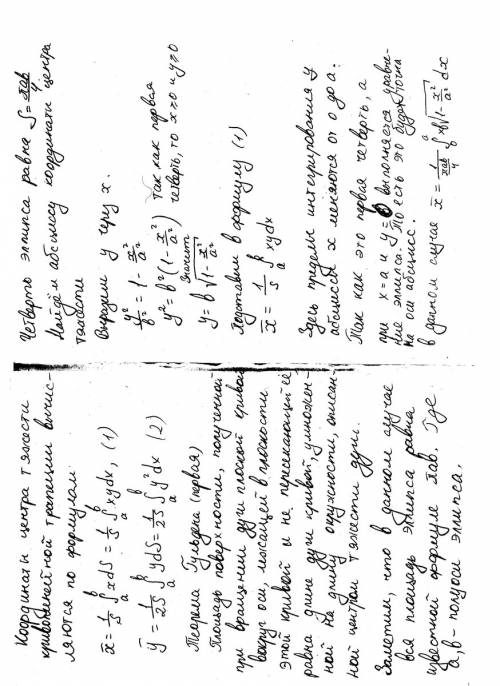 Координаты центра тяжести
криволинейной трапеции вычис-
ляются по формулам
x̄ = 1/S ∫_a^b x dS = 1/S ∫_a^b xy dx, (1)
ȳ = 1/2S ∫_a^b y dS = 1/2S ∫_a^b y² dx (2)
Теорема Гульдена (первая)
Площадь поверхности, полученной
при вращении дуги плоской кривой
вокруг оси, лежащей в плоскости
этой кривой и не пересекающей её
равна длине дуги кривой, умножен-
ной на длину окружности, описан-
ной центром тяжести дуги.
Заметим, что в данном случае
вся площадь эллипса равна
известной формуле πab. Где
a, b - полуоси эллипса.
Четверть эллипса равна S = πab/4
Найдём абсциссу координаты центра
тяжести
Выразим y через x.
y²/b² = 1 - x²/a²
y² = b²(1 - x²/a²)
Значит
y = b√(1 - x²/a²)
так как первая
четверть, то x ≥ 0 и y ≥ 0
Подставим в формулу (1)
x̄ = 1/S ∫_a^b xy dx
Здесь пределы интегрирования у
абсциссы x меняются от 0 до a.
Так как это первая четверть, а
при x = a и y = 0 выполняется уравне-
ние эллипса. То есть это будет точка
на оси абсцисс.
В данном случае x̄ = 1/(πab/4) ∫_0^a xb√(1 - x²/a²) dx